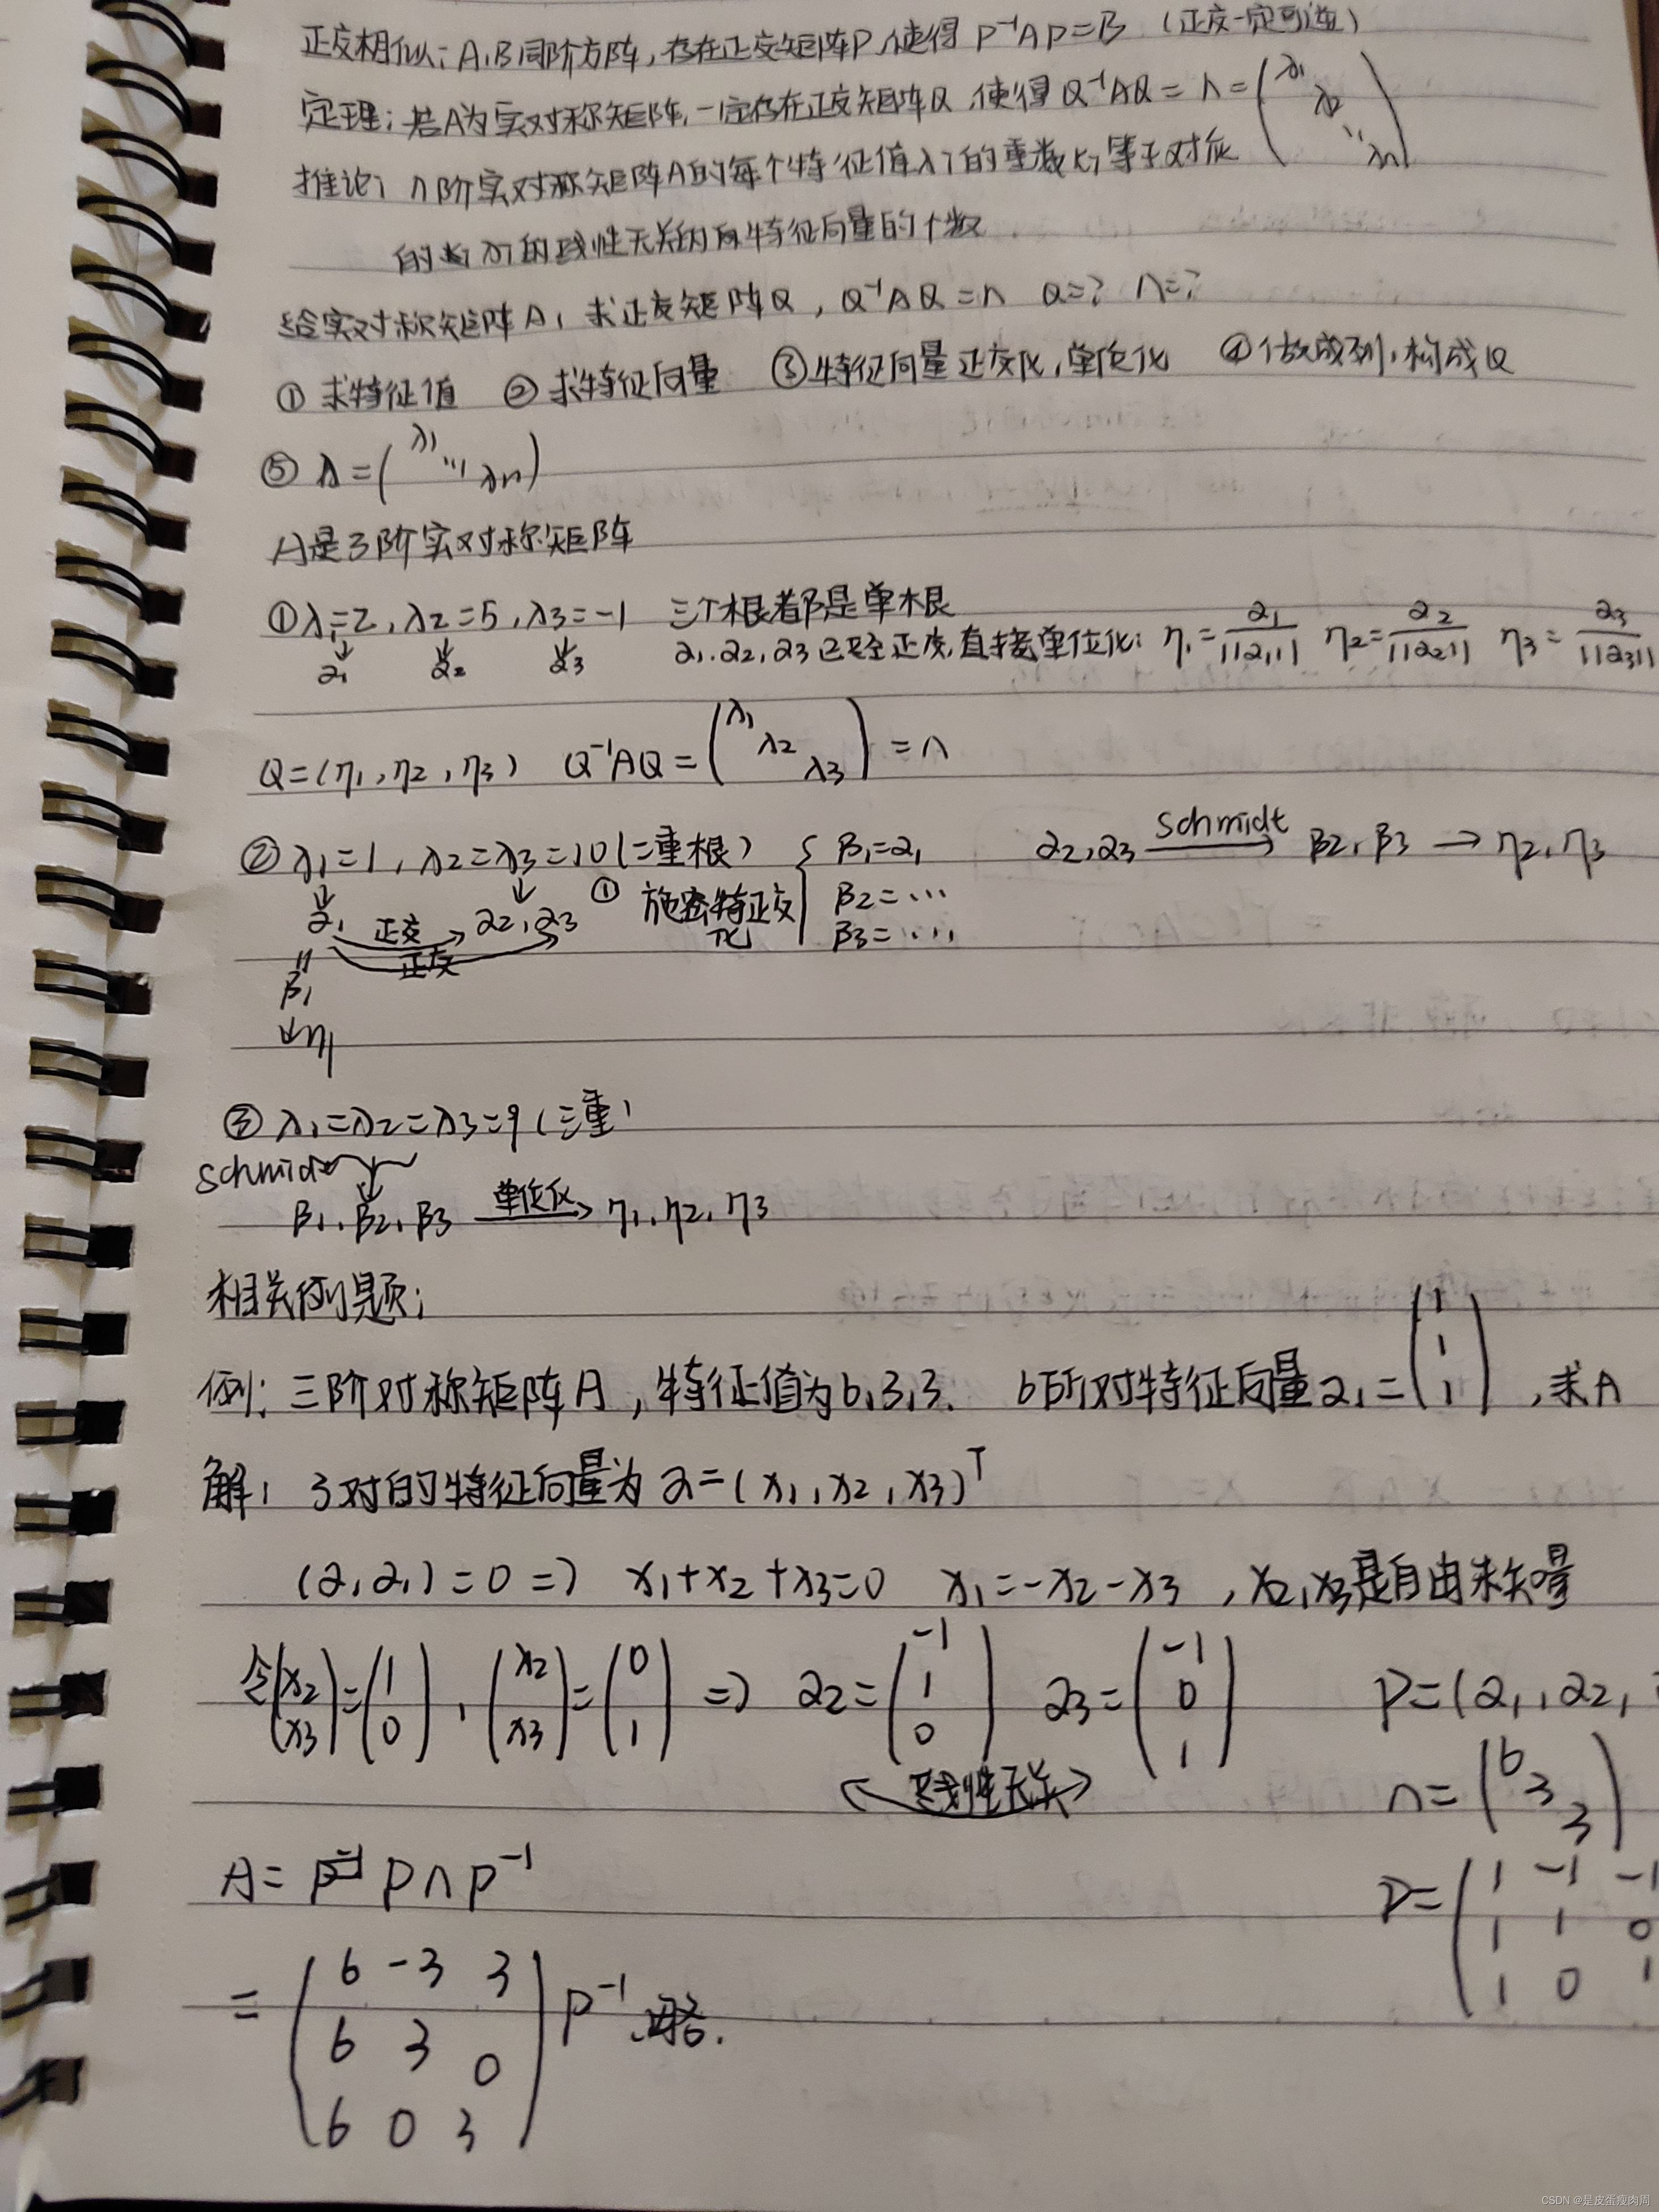 正交相似：A,B同阶方阵，存在正交矩阵P，使得 P⁻¹AP=B （正交一定可逆）
定理：若A为实对称矩阵，一定存在正交矩阵Q，使得 Q⁻¹AQ = Λ = (λ₁ λ₂ ⋱ λn)
推论：n阶实对称矩阵A的每个特征值λi的重数ki等于对应
的λi的线性无关的特征向量的个数
给实对称矩阵A，求正交矩阵Q，Q⁻¹AQ=Λ Q=? Λ=?
① 求特征值 ② 求特征向量 ③ 特征向量正交化，单位化 ④ 做成列，构成Q
⑤ Λ=(λ₁ ⋱ λn)
A是3阶实对称矩阵
① λ₁=2，λ₂=5，λ₃=-1 三个根都是单根
↓ ↓ ↓
α₁ α₂ α₃ α₁,α₂,α₃已经正交，直接单位化： η₁=α₁/||α₁|| η₂=α₂/||α₂|| η₃=α₃/||α₃||
Q=(η₁,η₂,η₃) Q⁻¹AQ=(λ₁ λ₂ λ₃)=Λ
② λ₁=1，λ₂=λ₃=10(二重根) { β₁=α₁ α₂,α₃ —Schmidt→ β₂,β₃ → η₂,η₃
↓ ↓ ① 施密特正交化 β₂=⋯
α₁ 正交 α₂,α₃ β₃=⋯
正交
‖
β₁
↓η₁
③ λ₁=λ₂=λ₃=9（三重）
Schmidt ↓
β₁,β₂,β₃ —单位化→ η₁,η₂,η₃
相关例题：
例：三阶对称矩阵A，特征值为6,3,3. 6所对特征向量α₁=(1 1 1)，求A
解：3对的特征向量为 α=(x₁,x₂,x₃)ᵀ
(α,α₁)=0 ⇒ x₁+x₂+x₃=0 x₁=-x₂-x₃ ，x₂,x₃是自由未知量
令(x₂ x₃)=(1 0)，(x₂ x₃)=(0 1) ⇒ α₂=(-1 1 0) α₃=(-1 0 1) P=(α₁,α₂,
线性无关 Λ=(6 3 3)
A= PΛP⁻¹
P=(1 -1 -1
1 1 0
1 0 1
=(6 -3 3
6 3 0
6 0 3) P⁻¹ 略.
CSDN @是皮蛋瘦肉周